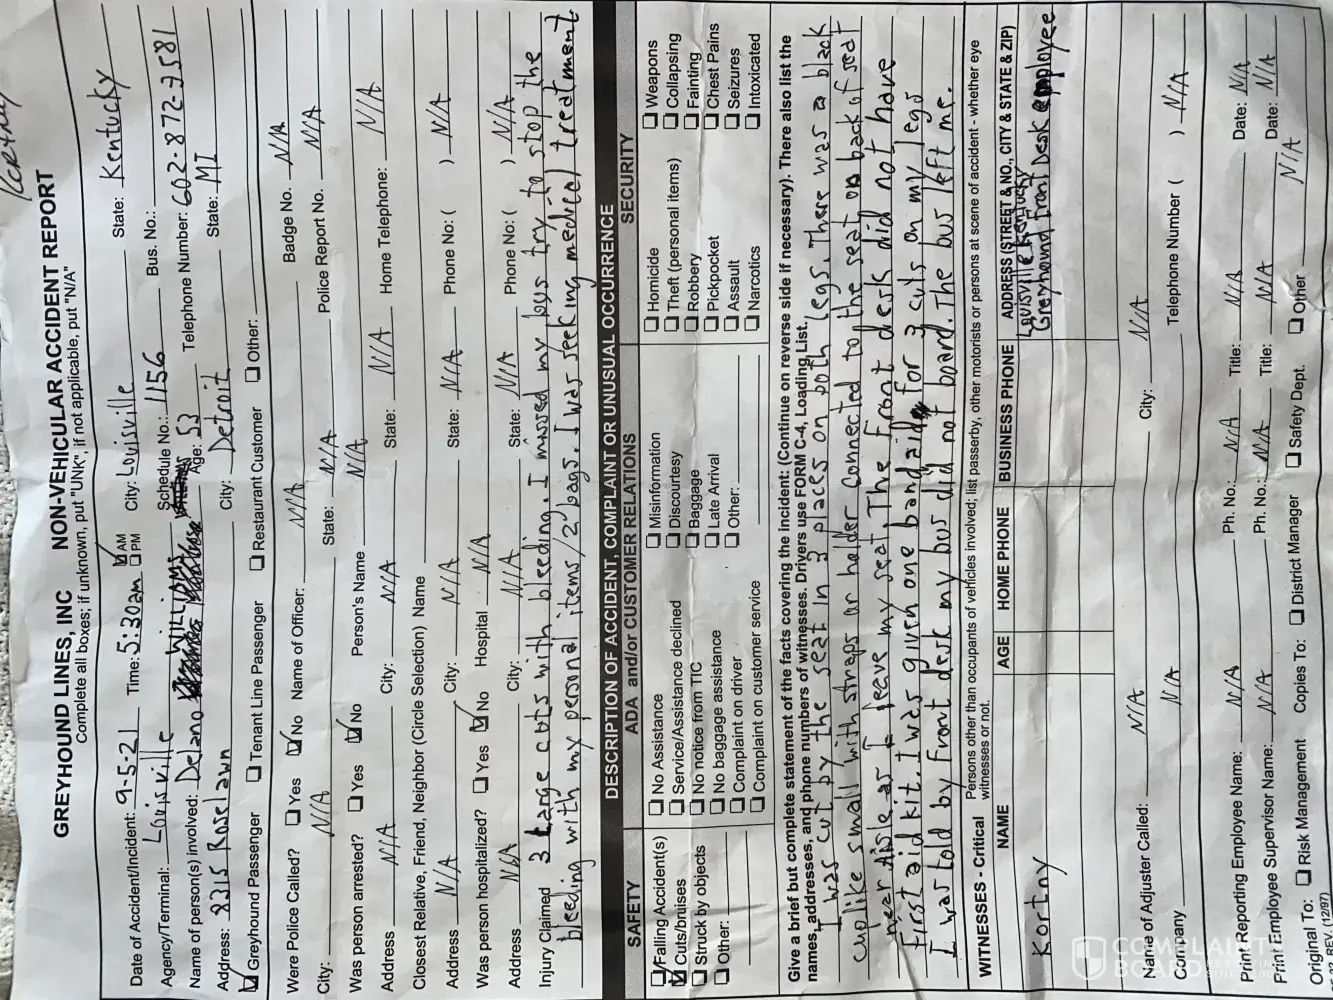 GREYHOUND LINES, INC NON-VEHICULAR ACCIDENT REPORT
Complete all boxes; if unknown, put "UNK", if not applicable, put "N/A"
Date of Accident/Incident: 9-5-21 Time: 5:30am ☑ AM ☐ PM City: Louisville State: Kentucky
Agency/Terminal: Louisville Schedule No.: 1156 Bus. No.:
Name of person(s) involved: Delano Williams Age: 53 Telephone Number: 602-872-3581
Address: 8315 Roselawn City: Detroit State: MI
☑ Greyhound Passenger ☐ Tenant Line Passenger ☐ Restaurant Customer ☐ Other:
Were Police Called? ☐ Yes ☑ No Name of Officer: N/A Badge No. N/A
City: N/A State: N/A Police Report No. N/A
Was person arrested? ☐ Yes ☑ No Person's Name N/A
Address N/A City: N/A State: N/A Home Telephone: N/A
Closest Relative, Friend, Neighbor (Circle Selection) Name
Address N/A City: N/A State: N/A Phone No: ( ) N/A
Was person hospitalized? ☐ Yes ☑ No Hospital N/A
Address N/A City: N/A State: N/A Phone No: ( ) N/A
Injury Claimed 3 large cuts with bleeding. I missed my bus try to stop the
bleeding with my personal items/2 bags. I was seeking medical treatment
DESCRIPTION OF ACCIDENT, COMPLAINT OR UNUSUAL OCCURRENCE
SAFETY
☑ Falling Accident(s)
☑ Cuts/bruises
☐ Struck by objects
☐ Other:
ADA and/or CUSTOMER RELATIONS
☐ No Assistance
☐ Service/Assistance declined
☐ No notice from TIC
☐ No baggage assistance
☐ Complaint on driver
☐ Complaint on customer service
☐ Misinformation
☐ Discourtesy
☐ Baggage
☐ Late Arrival
☐ Other:
SECURITY
☐ Homicide
☐ Theft (personal items)
☐ Robbery
☐ Pickpocket
☐ Assault
☐ Narcotics
☐ Weapons
☐ Collapsing
☐ Fainting
☐ Chest Pains
☐ Seizures
☐ Intoxicated
Give a brief but complete statement of the facts covering the incident: (Continue on reverse side if necessary). There also list the
names, addresses, and phone numbers of witnesses. Drivers use FORM C-4, Loading List.
I was cut by the seat in 3 places on both legs. There was a black
cup like small with straps or holder connected to the seat on back of seat
near aisle as I leave my seat. The Front desk did not have
First aid kit. I was given one bandaid for 3 cuts on my legs
I was told by Front desk my bus did not board. The bus left me.
WITNESSES - Critical Persons other than occupants of vehicles involved; list passerby, other motorists or persons at scene of accident - whether eye
witnesses or not.
NAME AGE HOME PHONE BUSINESS PHONE ADDRESS (STREET & NO., CITY & STATE & ZIP)
Kortny Louisville Kentucky
Greyhound Front Desk employee
Name of Adjuster Called: N/A City: N/A
Company N/A Telephone Number ( ) N/A
Print Reporting Employee Name: N/A Ph. No.: N/A Title: N/A Date: N/A
Print Employee Supervisor Name: N/A Ph. No.: N/A Title: N/A Date: N/A
Original To: ☐ Risk Management Copies To: ☐ District Manager ☐ Safety Dept. ☐ Other N/A
REV. (12/97)
COMPLAINTS
BOARD